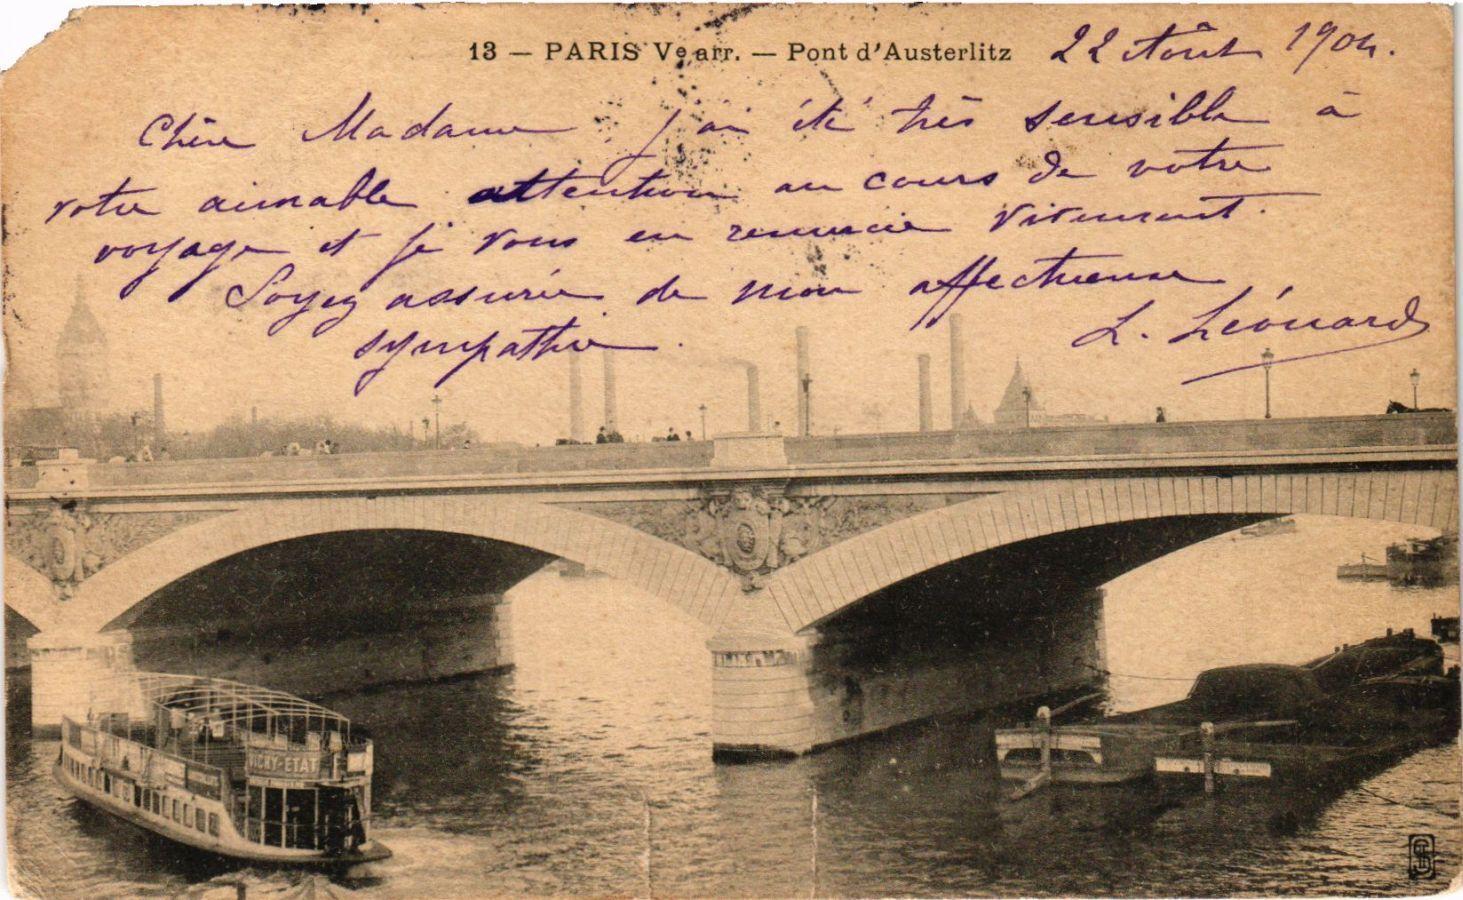 13 — PARIS Ve arr. — Pont d'Austerlitz
22 Août 1904.
Chère Madame j'ai été très sensible à
votre aimable attention au cours de votre
voyage et je vous en remercie vivement.
Soyez assurée de mon affectueuse
sympathie.
L. Léonard
VICHY-ETAT